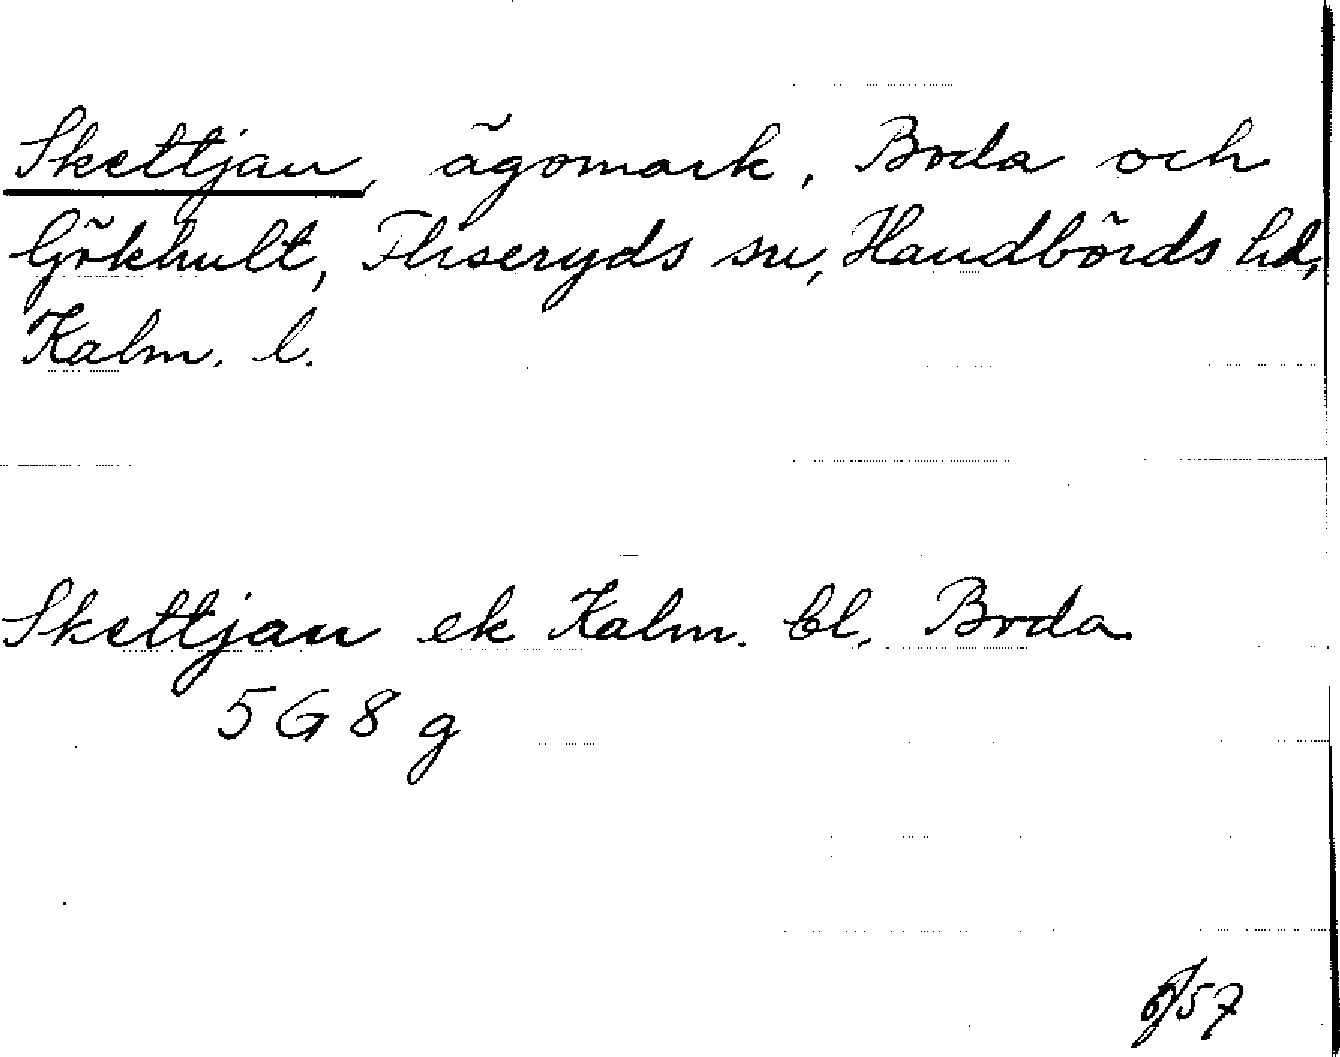 Skettjan, ägomark, Boda och
Gökhult, Fliseryds sn, Handbörds hd,
Kalm. l.
Skettjan ek Kalm. bl. Boda
5 G 8 g
6/57